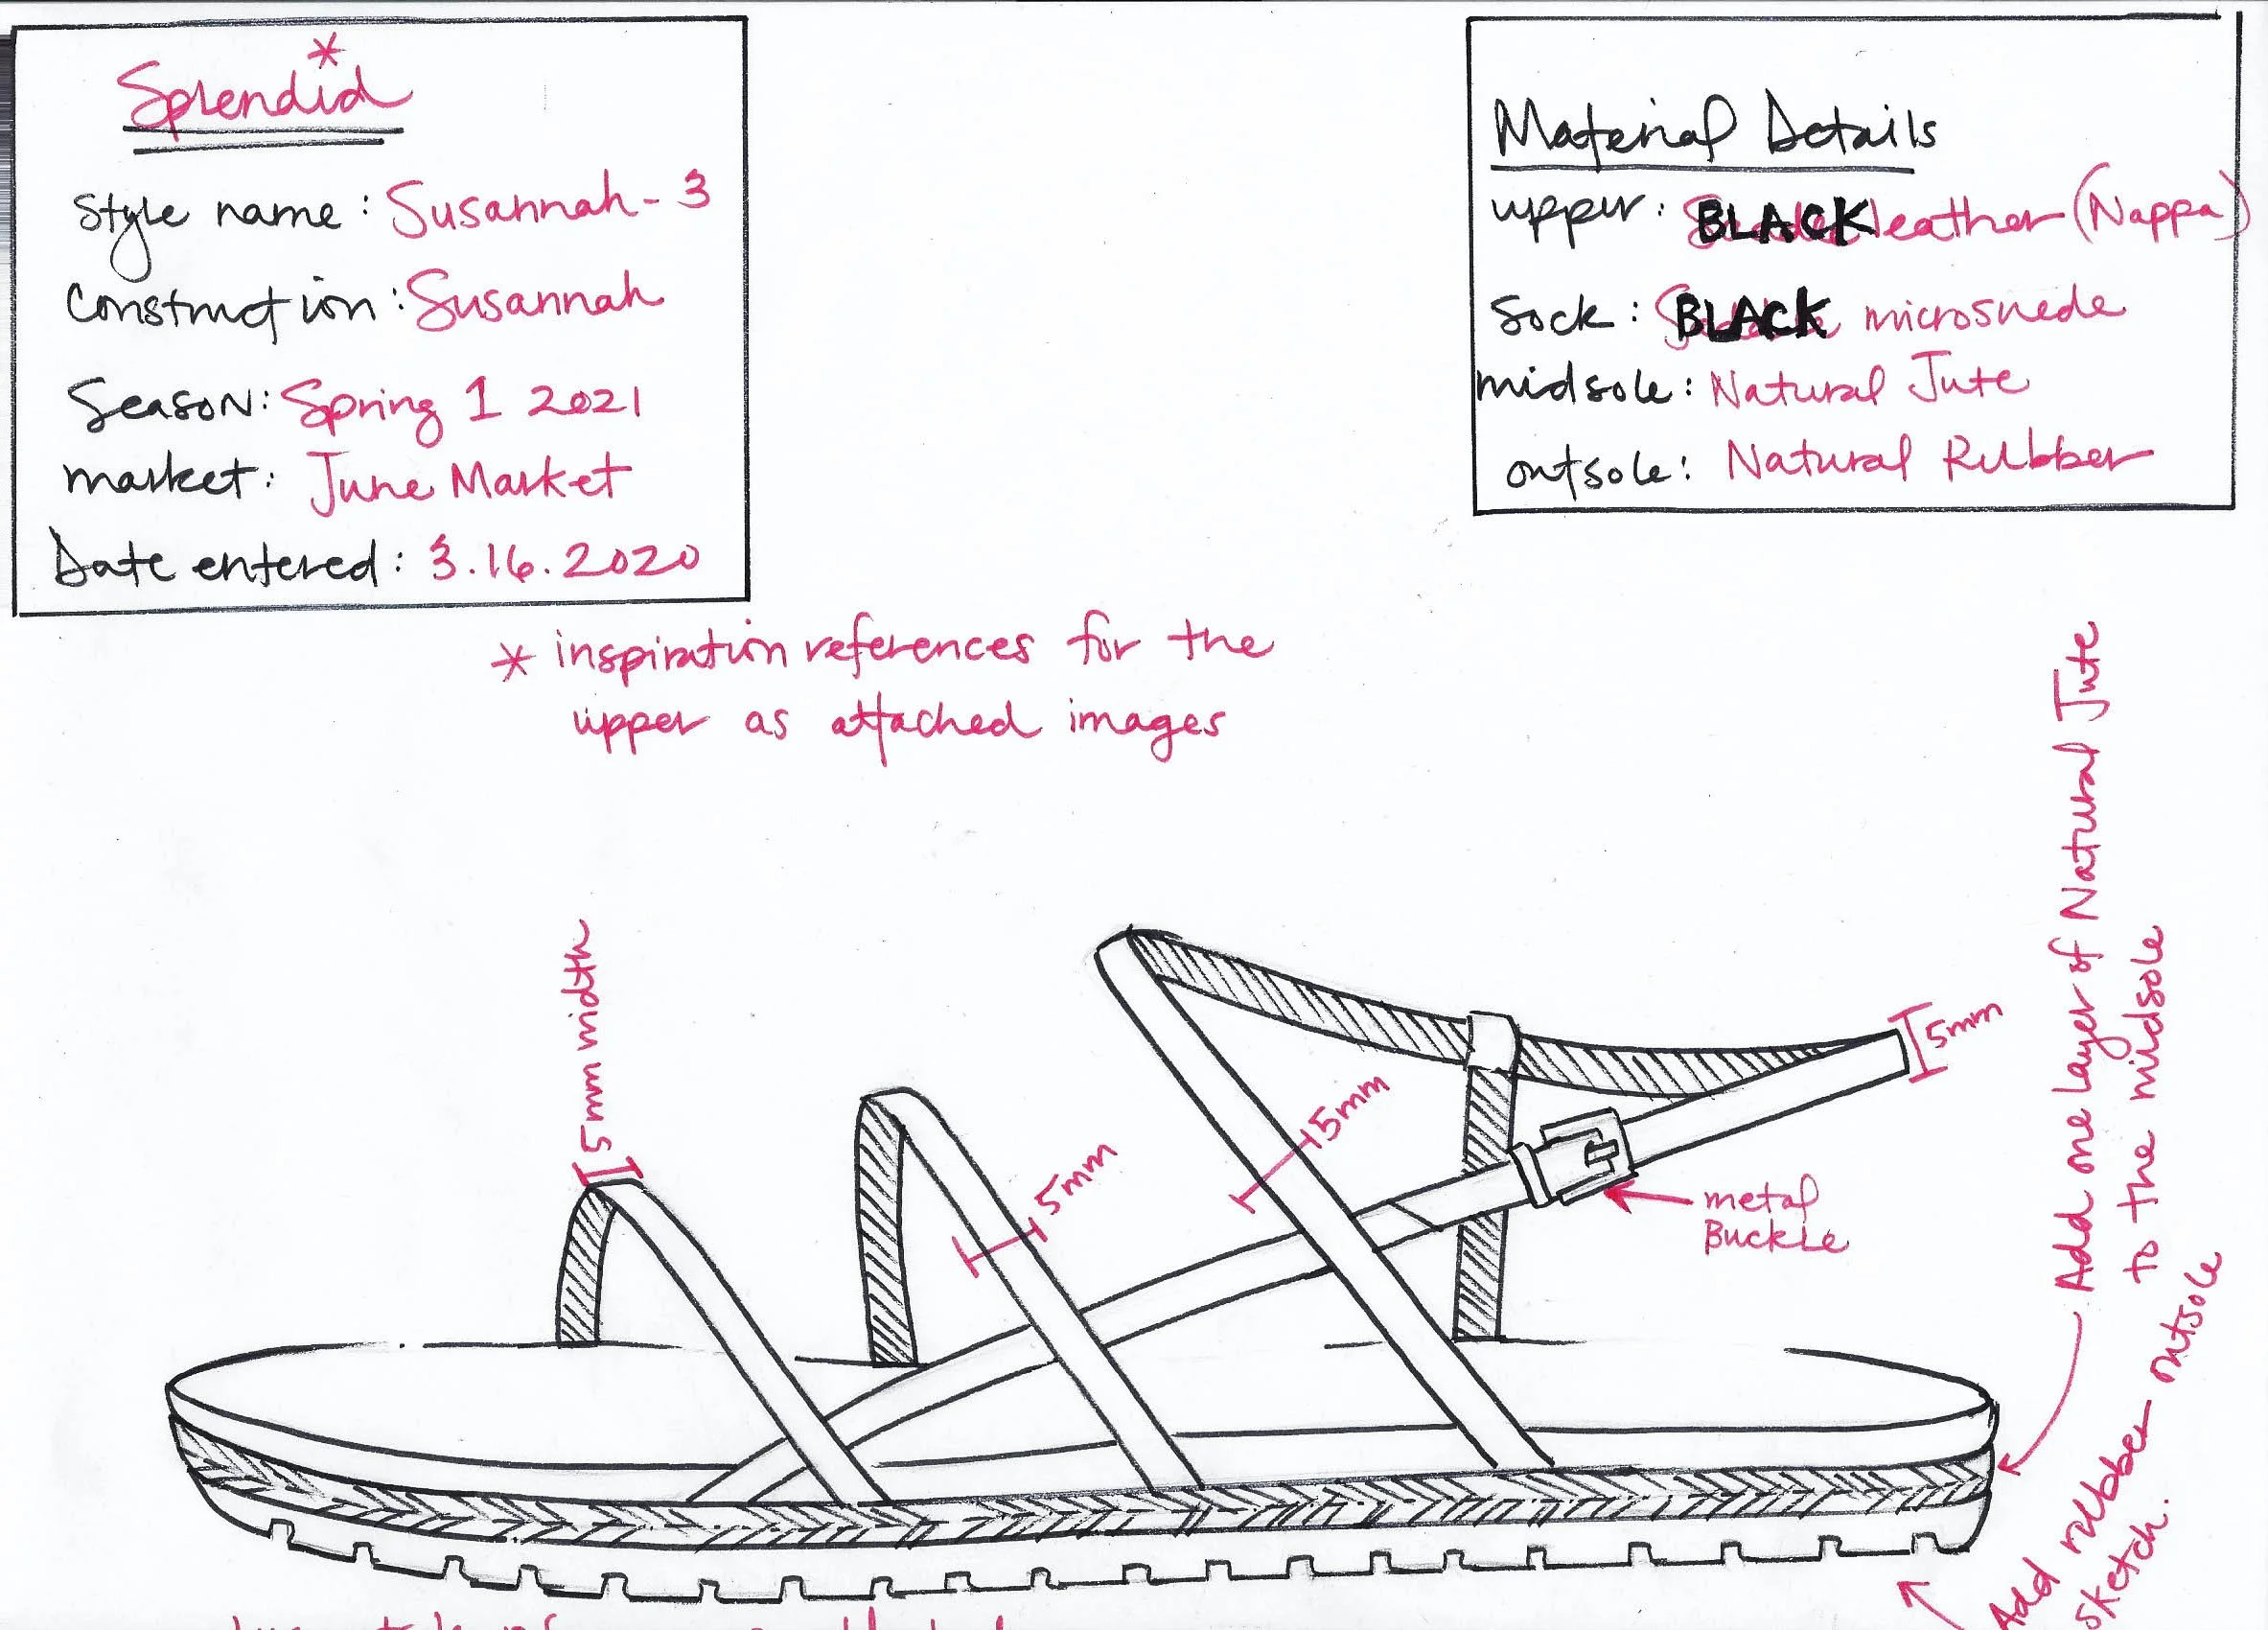 Splendid *
Style name: Susannah-3
Construction: Susannah
Season: Spring 1 2021
market: June Market
Date entered: 3.16.2020
Material Details
upper: BLACK leather (Nappa)
Sock: BLACK microsuede
midsole: Natural Jute
outsole: Natural Rubber
* inspiration references for the
upper as attached images
5mm width
5mm
5mm
5mm
metal
Buckle
Add one layer of Natural Jute
to the midsole
Add rubber outsole
sketch.